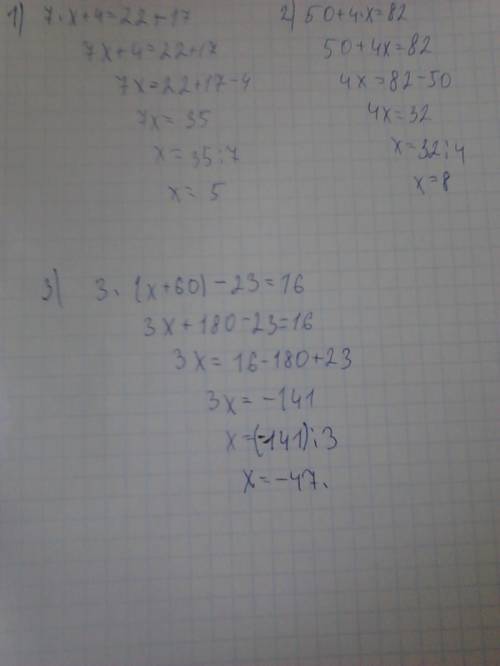 1) 7·x+4=22+17
7x+4=22+17
7x=22+17-4
7x=35
x=35:7
x=5
2) 50+4·x=82
50+4x=82
4x=82-50
4x=32
x=32:4
x=8
3) 3·(x+60)-23=16
3x+180-23=16
3x=16-180+23
3x=-141
x=(-141):3
x=-47.